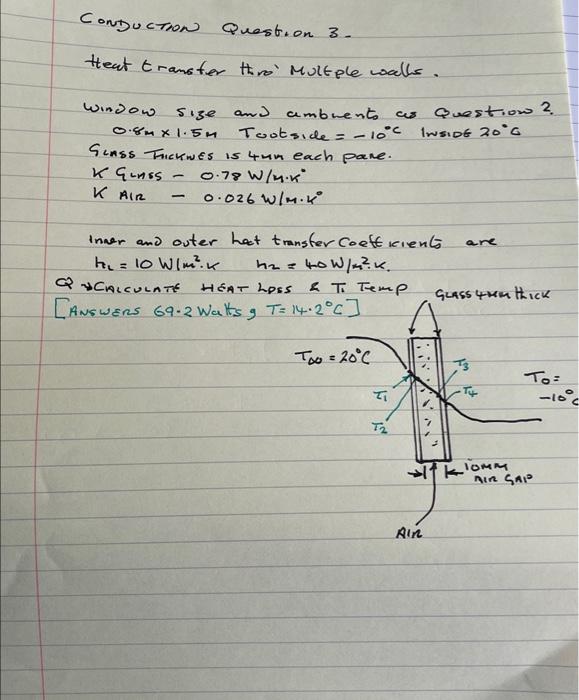 CONDUCTION Question 3.
Heat transfer thro' Multple walls.
Window size and ambients as Question 2
0.8M x 1.5M Toutside = -10°C INSIDE 20°C
GLASS THICKNES is 4mm each pane.
K GLASS - 0.78 W/M.K°
K AIR - 0.026 W/M.K°
Inner and outer heat transfer coefficients are
h1 = 10 W/m².K h2 = 40 W/m².K.
Q → CALCULATE HEAT LOSS & T1 Temp
[ANSWERS 69.2 Watts, T = 14.2°C]
GLASS 4MM thick
T∞ = 20°C
T3
T1
T4
To = -10°C
T2
10MM
AIR GAP
AIR